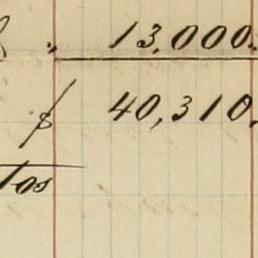 " 13.000.
$ 40,310.
tos